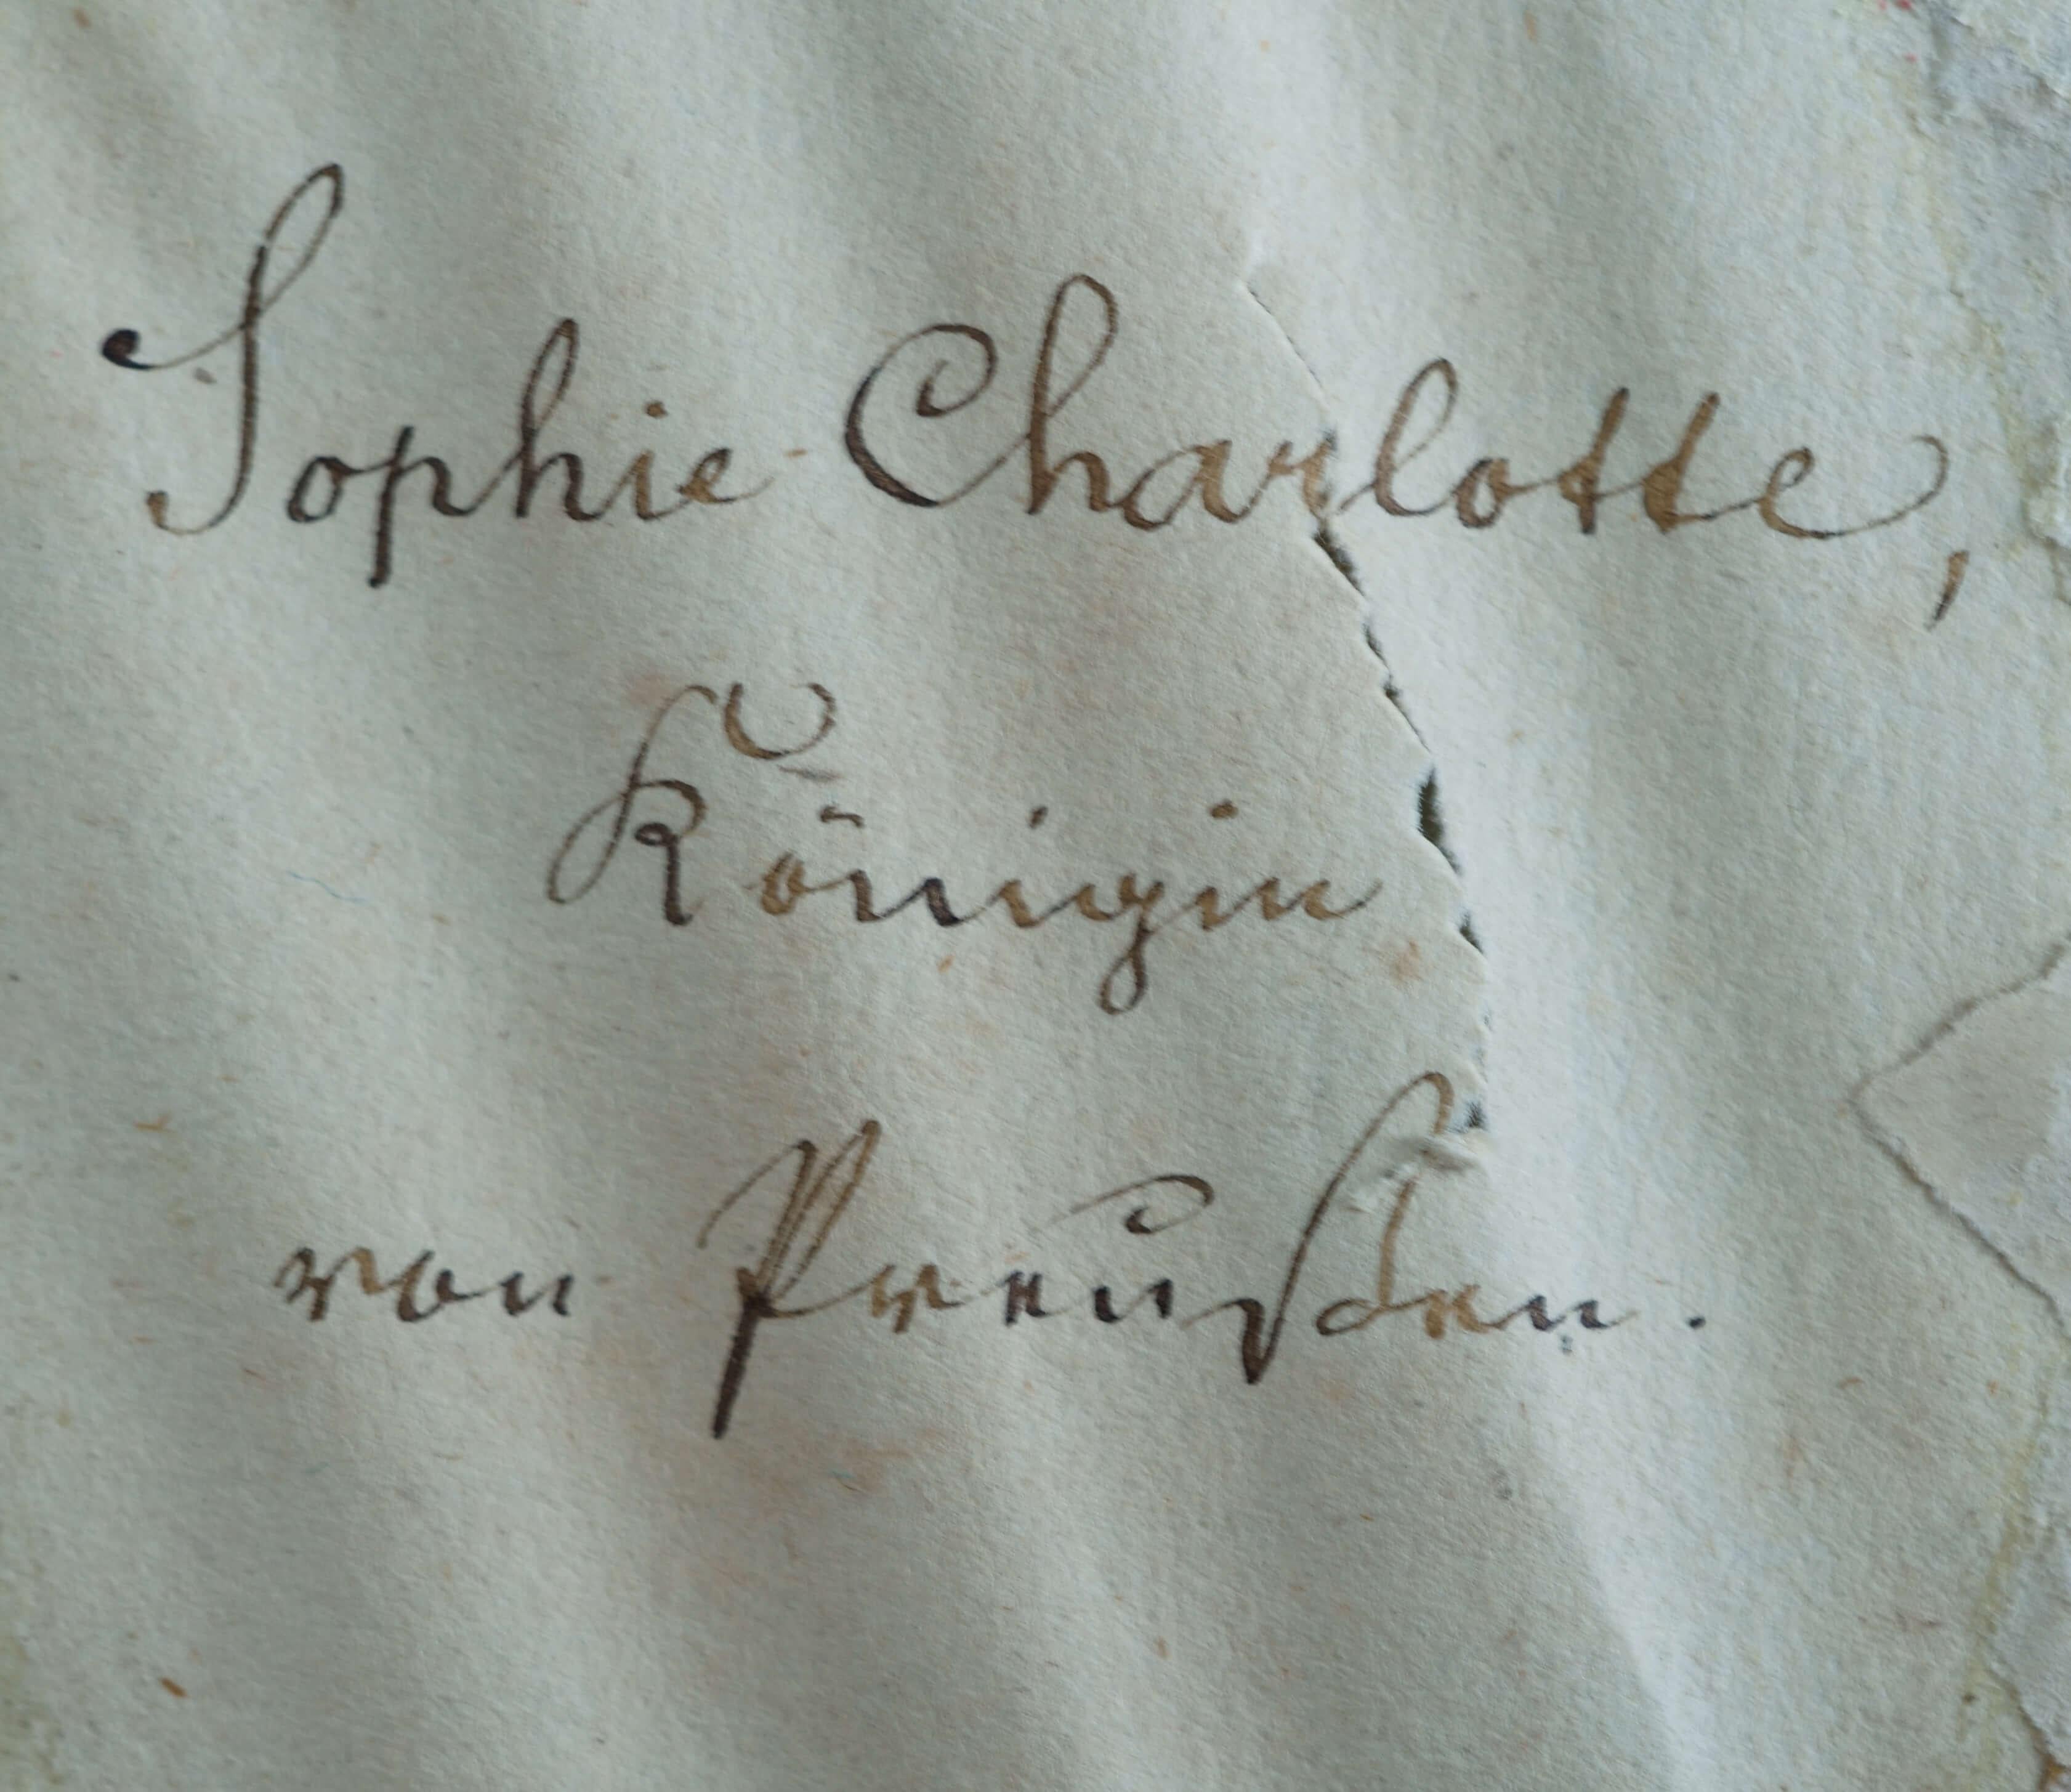 Sophie Charlotte,
Königin
von Preußen.